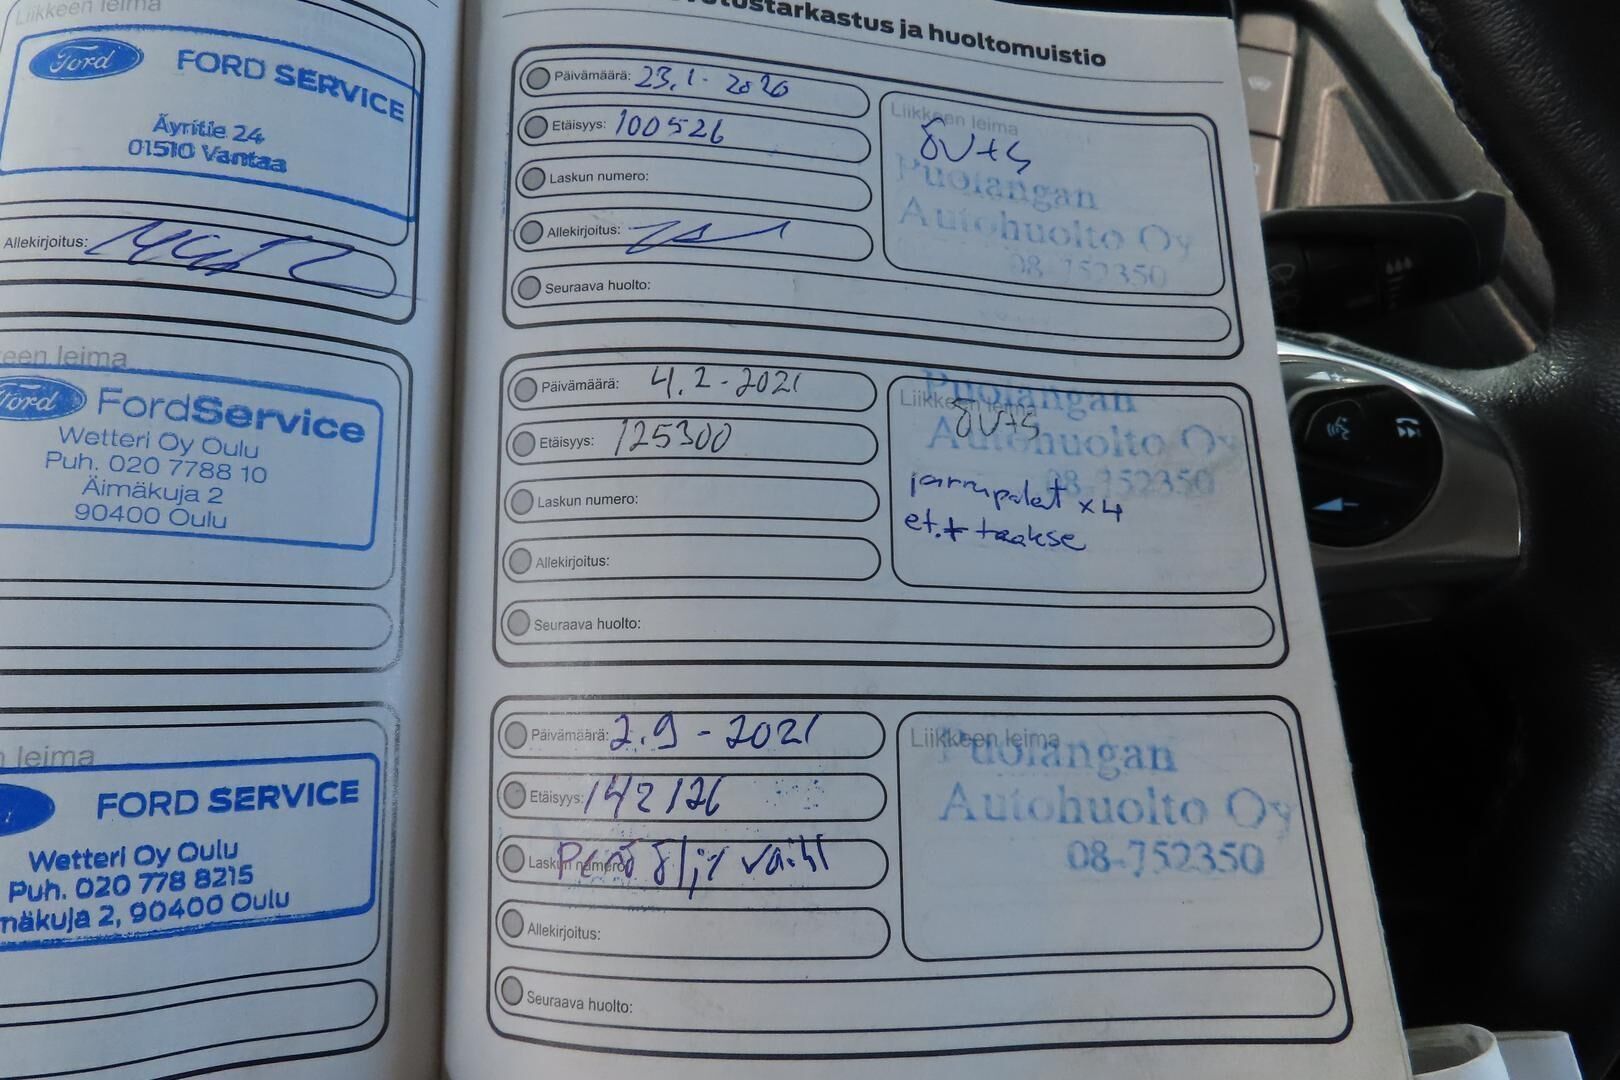 Liikkeen leima
Ford
FORD SERVICE
Äyritie 24
01510 Vantaa
Allekirjoitus:
een leima
Ford
FordService
Wetteri Oy Oulu
Puh. 020 7788 10
Äimäkuja 2
90400 Oulu
leima
FORD SERVICE
Wetteri Oy Oulu
Puh. 020 778 8215
mäkuja 2, 90400 Oulu
otustarkastus ja huoltomuistio
Päivämäärä: 23.1-2020
Etäisyys: 100526
Laskun numero:
Allekirjoitus:
Seuraava huolto:
Liikkeen leima
ÖV+S
Puolangan
Autohuolto Oy
08-752350
Päivämäärä: 4.2-2021
Etäisyys: 125300
Laskun numero:
Allekirjoitus:
Seuraava huolto:
Liikkeen leima
Puolangan
ÖV+S
Autohuolto Oy
08-752350
jarrupalat x4
et.+ taakse
Päivämäärä: 2.9-2021
Etäisyys: 142126
Laskun numero: Perä öljy vaiht
Allekirjoitus:
Seuraava huolto:
Liikkeen leima
Puolangan
Autohuolto Oy
08-752350